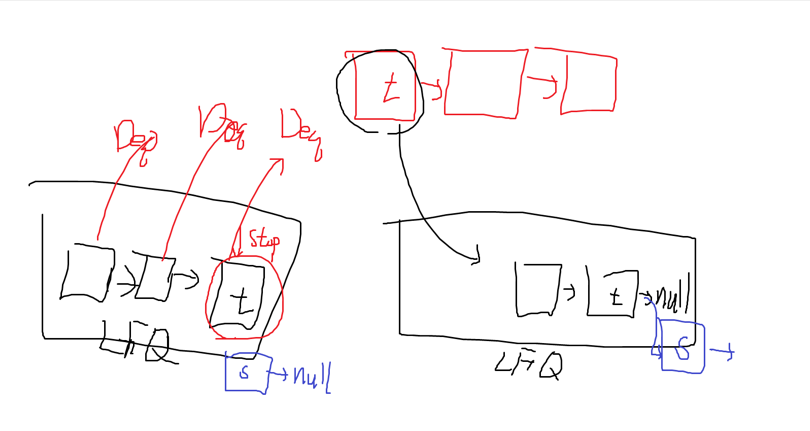 t
Deq
Deq
Deq
Stop
t
LFQ
S
null
t
null
S
LFQ